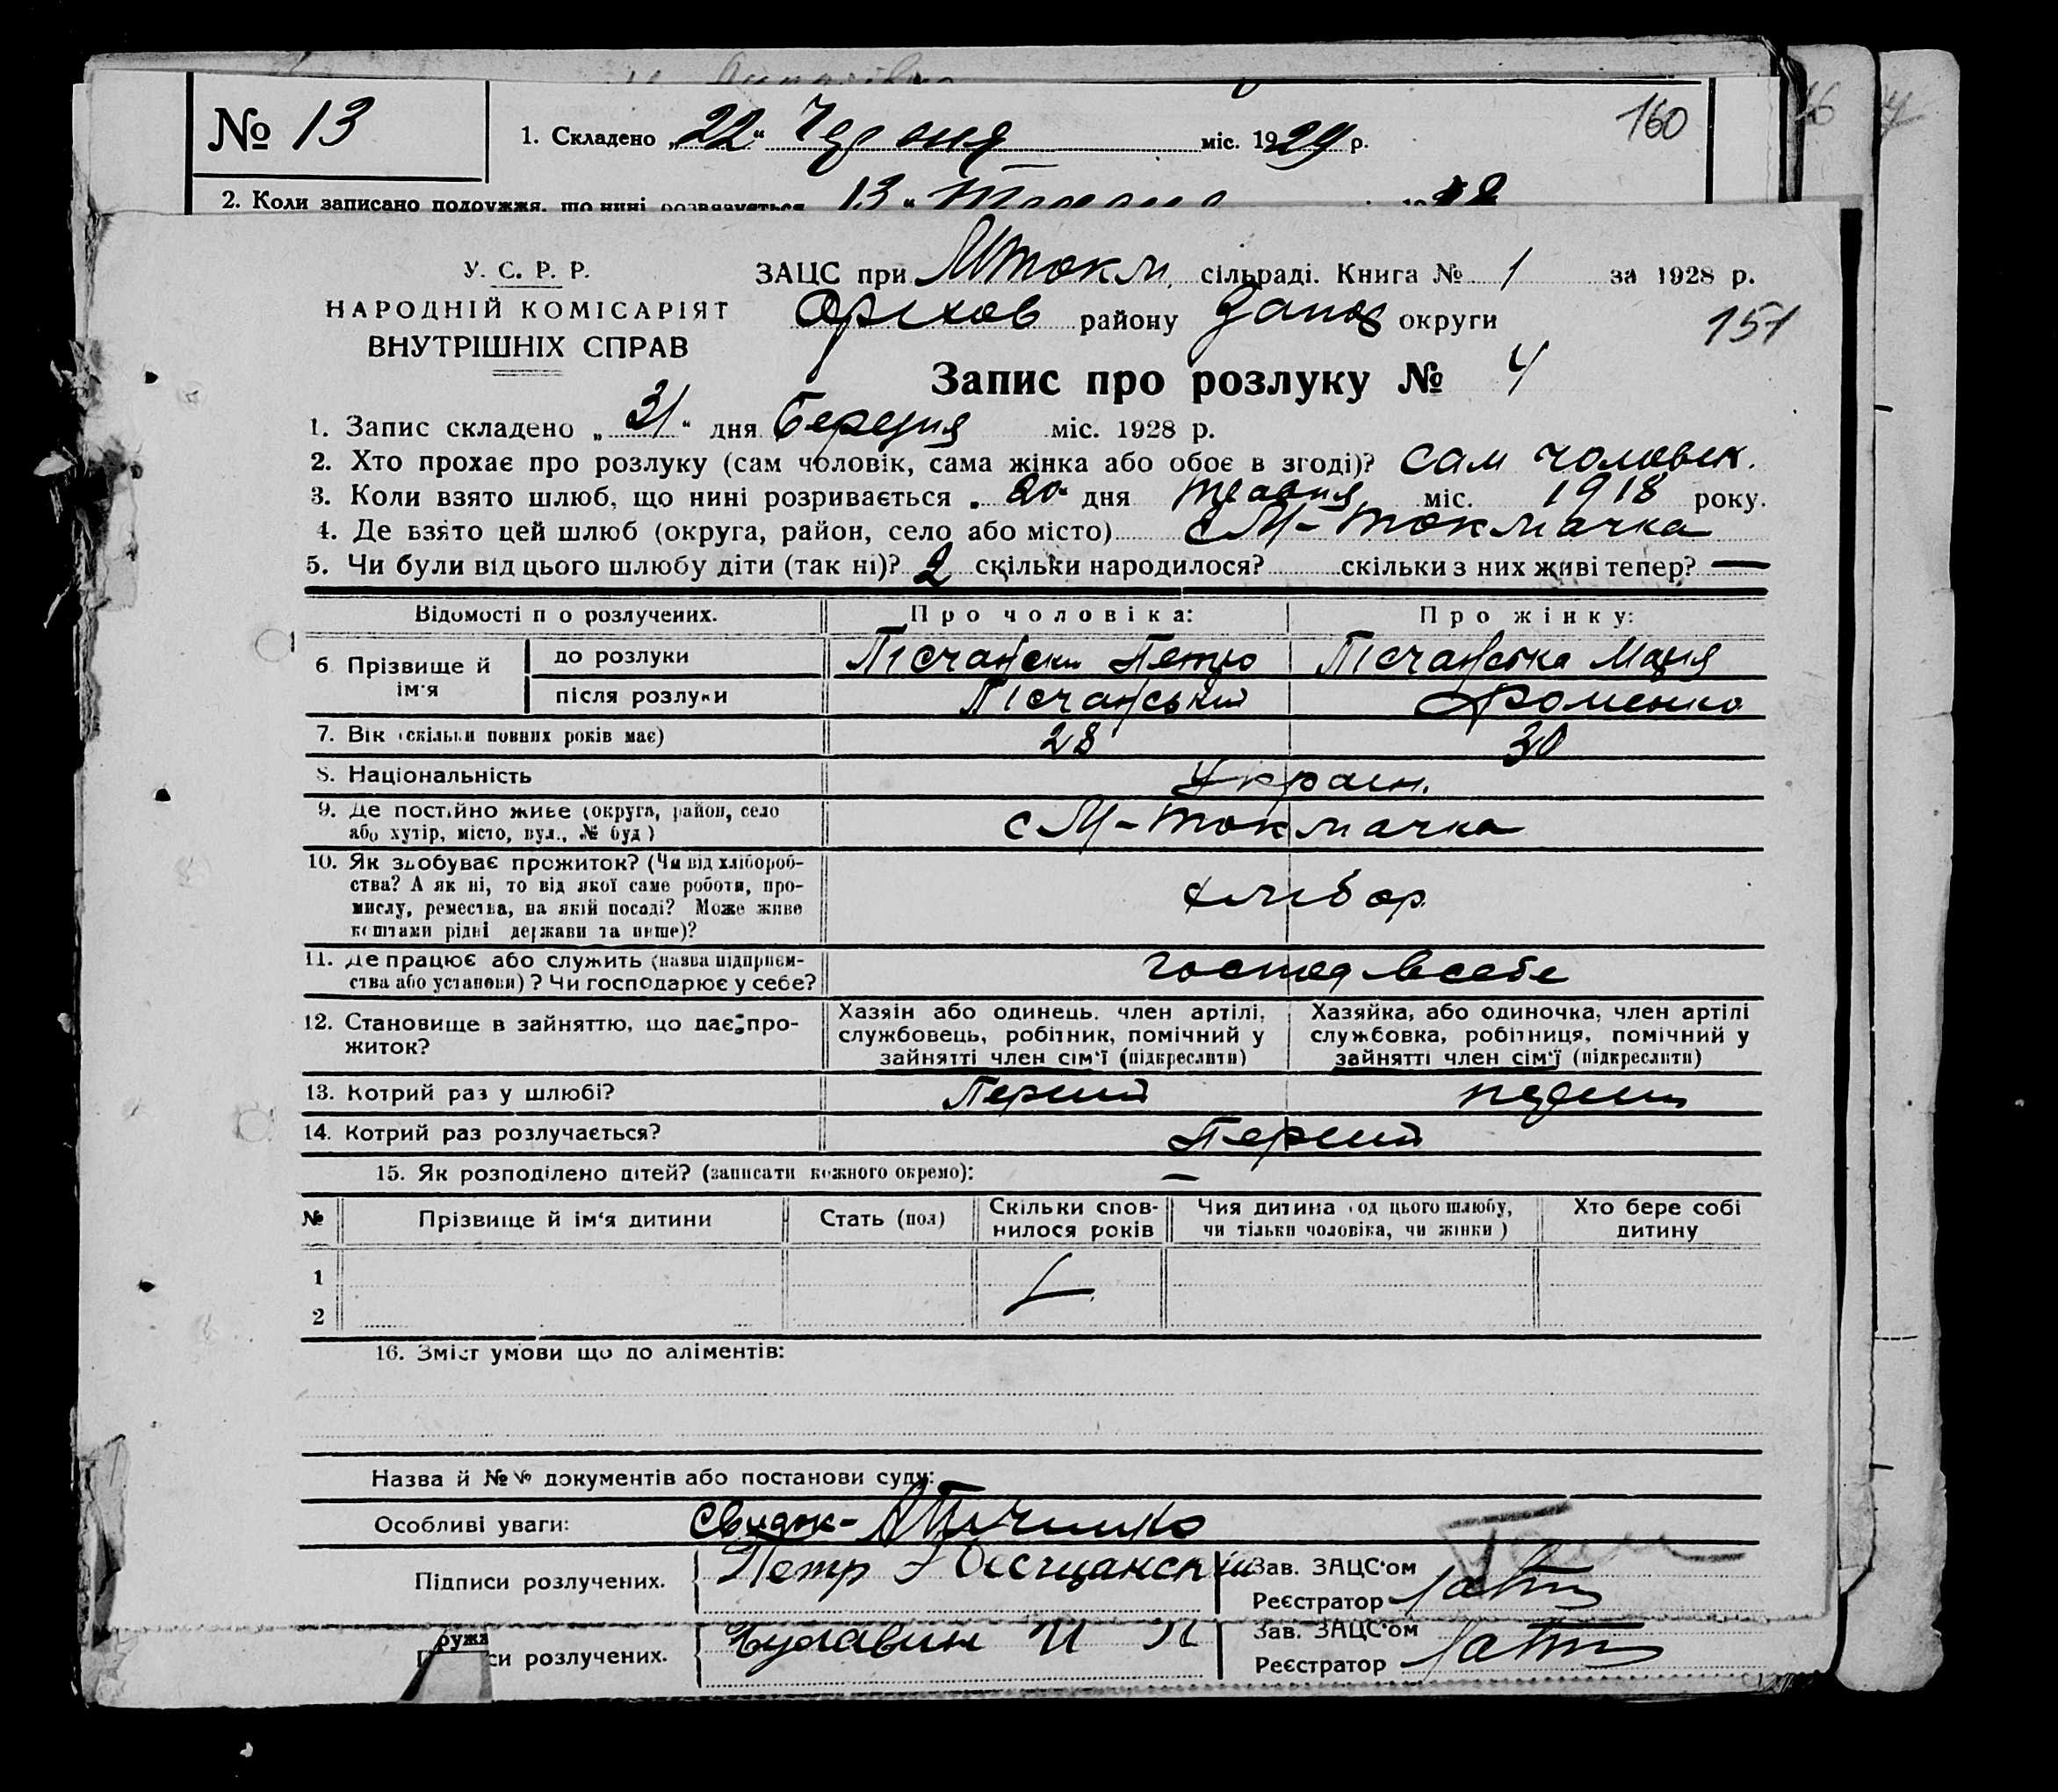 № 13
1. Складено „22“ Червня міс. 1929 р.
160
2. Коли записано подружжя, що нині розвязується 13 „
У. С. Р. Р.
НАРОДНІЙ КОМІСАРІЯТ
ВНУТРІШНІХ СПРАВ
ЗАЦС при МТокм. сільраді. Книга № 1 за 1928 р.
Оріхов району Запор округи
151
Запис про розлуку № 4
1. Запис складено „31“ дня Березня міс. 1928 р.
2. Хто прохає про розлуку (сам чоловік, сама жінка або обоє в згоді)? сам чоловік.
3. Коли взято шлюб, що нині розривається „20“ дня травня міс. 1918 року.
4. Де взято цей шлюб (округа, район, село або місто) с М-Токмачка
5. Чи були від цього шлюбу діти (так ні)? 2 скільки народилося? скільки з них живі тепер? —
Відомості п о розлучених.
Про чоловіка:
Про жінку:
6. Прізвище й ім'я
до розлуки
Пісчанськи Петро
Пісчанська Марія
після розлуки
Пісчанський
Фоменко
7. Вік (скільки повних років має)
28
30
8. Національність
Украін.
9. Де постійно живе (округа, район, село
або хутір, місто, вул., № буд)
с М-Токмачка
10. Як здобуває прожиток? (Чи від хлібороб-
ства? А як ні, то від якої саме роботи, про-
мислу, ремества, на якій посаді? Може живе
коштами рідні держави та инше)?
хлібор.
11. Де працює або служить (назва підприєм-
ства або установи)? Чи господарює у себе?
господ в себе
12. Становище в зайняттю, що дає про-
житок?
Хазяїн або одинець, член артілі,
службовець, робітник, помічний у
зайнятті член сім'ї (підкреслити)
Хазяйка, або одиночка, член артілі
службовка, робітниця, помічний у
зайнятті член сім'ї (підкреслити)
13. Котрий раз у шлюбі?
Перший
перший
14. Котрий раз розлучається?
Перший
15. Як розподілено дітей? (записати кожного окремо): —
№
Прізвище й ім'я дитини
Стать (пол)
Скільки спов-
нилося років
Чия дитина (од цього шлюбу,
чи тільки чоловіка, чи жінки)
Хто бере собі
дитину
1
2
16. Зміст умови що до аліментів:
Назва й №№ документів або постанови суду:
Особливі уваги:
Свидок-
Підписи розлучених.
Петр
Зав. ЗАЦС'ом
Реєстратор
ружж
си розлучених.
Зав. ЗАЦС'ом
Реєстратор